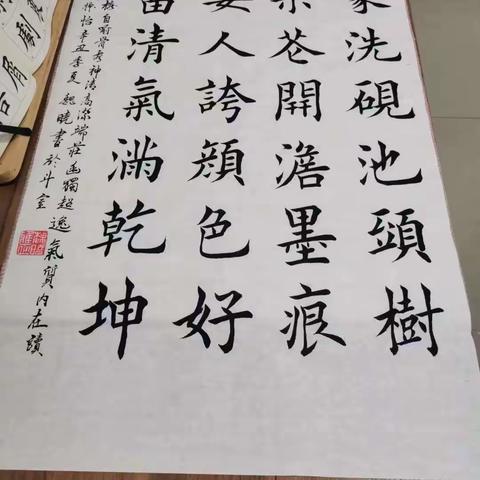 家洗硯池頭樹
朵花開澹墨痕
要人誇顏色好
留清氣滿乾坤
自喻骨秀神清高潔端莊幽獨超逸氣質内在
怡辛丑季夏魏曉書於斗室